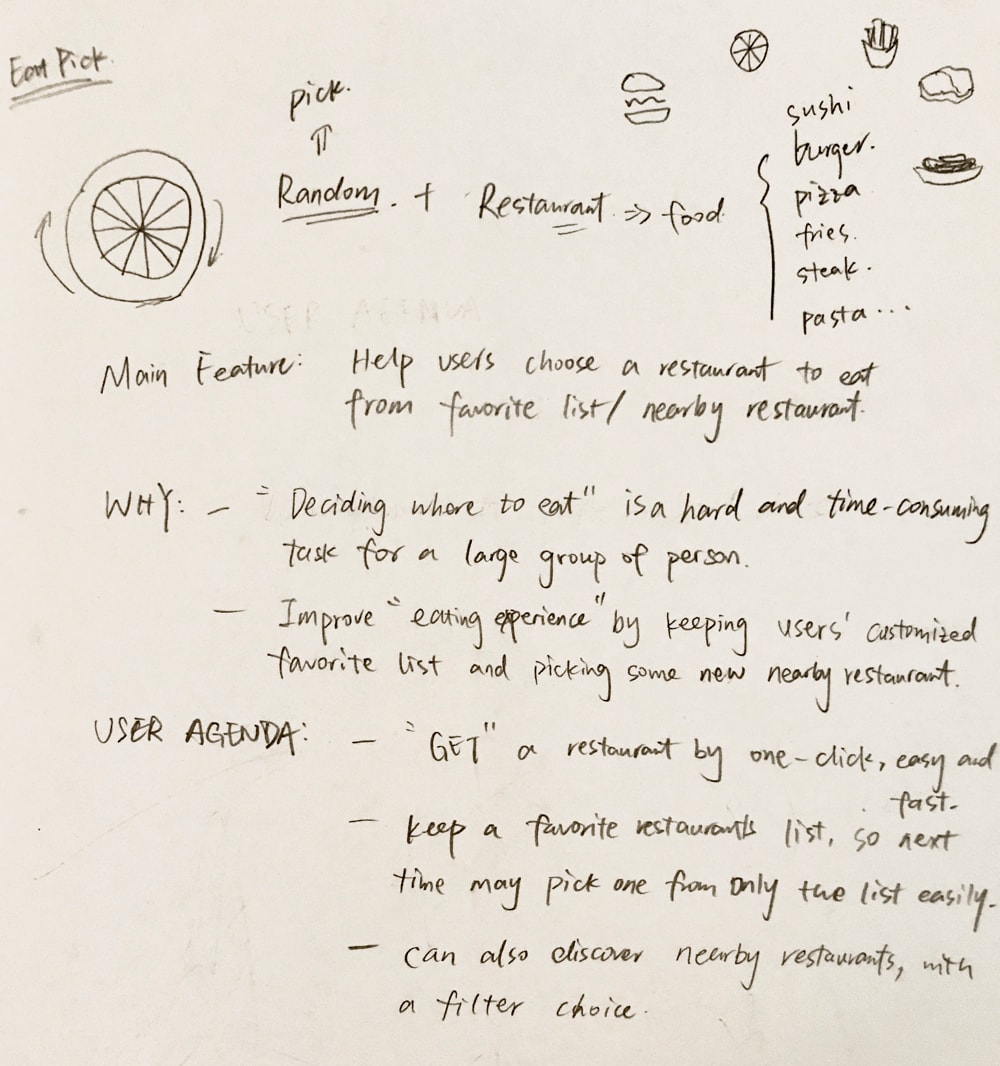 Eat Pick.
pick.
⇑
Random. + Restaurant ⇒ food
sushi
burger.
pizza
fries.
steak.
pasta...
Main Feature: Help users choose a restaurant to eat
from favorite list/ nearby restaurant.
WHY: - "Deciding where to eat" is a hard and time-consuming
task for a large group of person.
- Improve "eating experience" by keeping users' customized
favorite list and picking some new nearby restaurant.
USER AGENDA: - "GET" a restaurant by one-click, easy and
fast.
- keep a favorite restaurants list, so next
time may pick one from only the list easily.
- can also discover nearby restaurants, with
a filter choice.